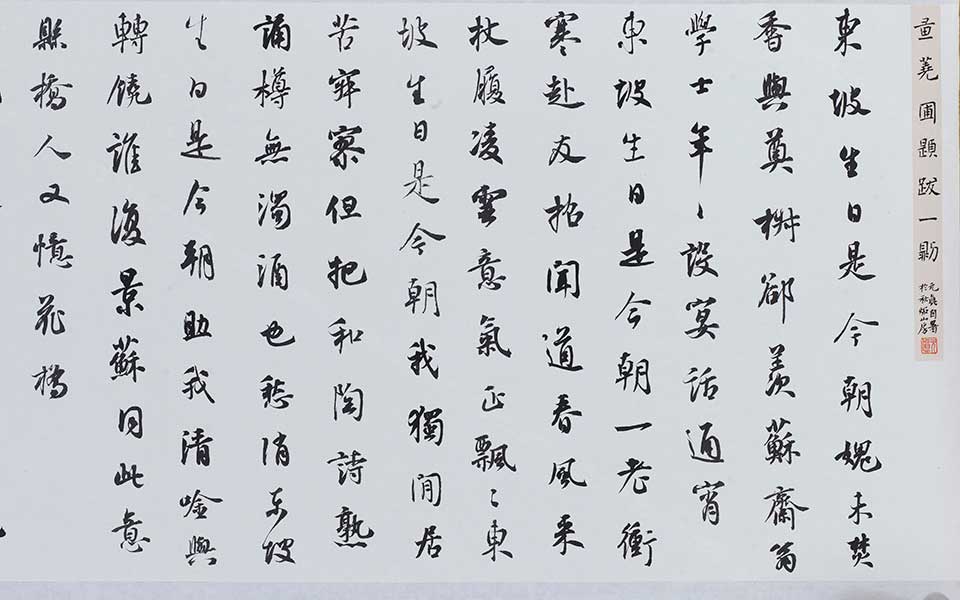 黃蕘圃題跋一則
自署
山房
東坡生日是今朝愧未焚
香與奠椒卻羨蘇齋翁
學士年〻設宴話通宵
東坡生日是今朝一老衝
寒赴友招聞道春風来
杖履凌雲意氣正飄〻東
坡生日是今朝我獨閒居
苦寂寥但把和陶詩熟
誦樽無濁酒也愁消东坡
生日是今朝助我清唫興
轉饒誰復景蘇同此意
縣橋人又憶花橋